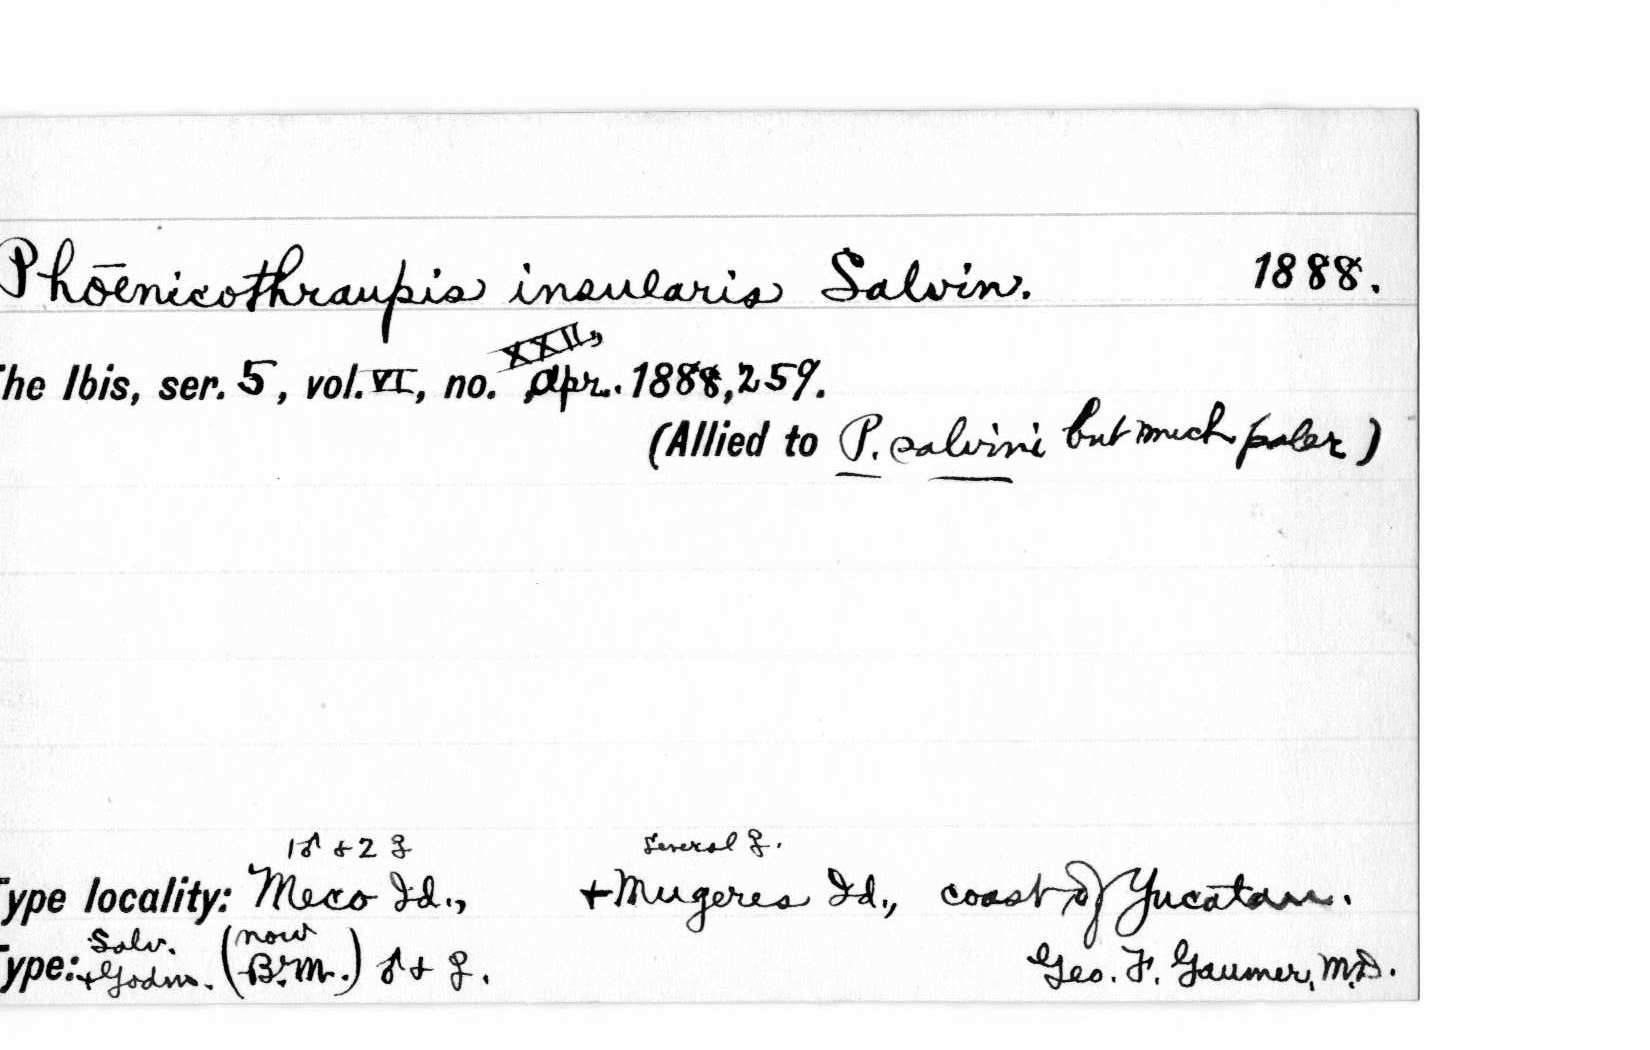 Phoenicothraupis insularis Salvin. 1888.
The Ibis, ser. 5, vol. VI, no. XXII, Apr. 1888, 259.
(Allied to P. salvini but much paler)
1♂ + 2 ♀ several ♀.
Type locality: Meco Id., + Mugeres Id., coast of Yucatan.
Type: Salv. + Godm. (now B.M.) ♂ + ♀. Geo. F. Gaumer, M.D.